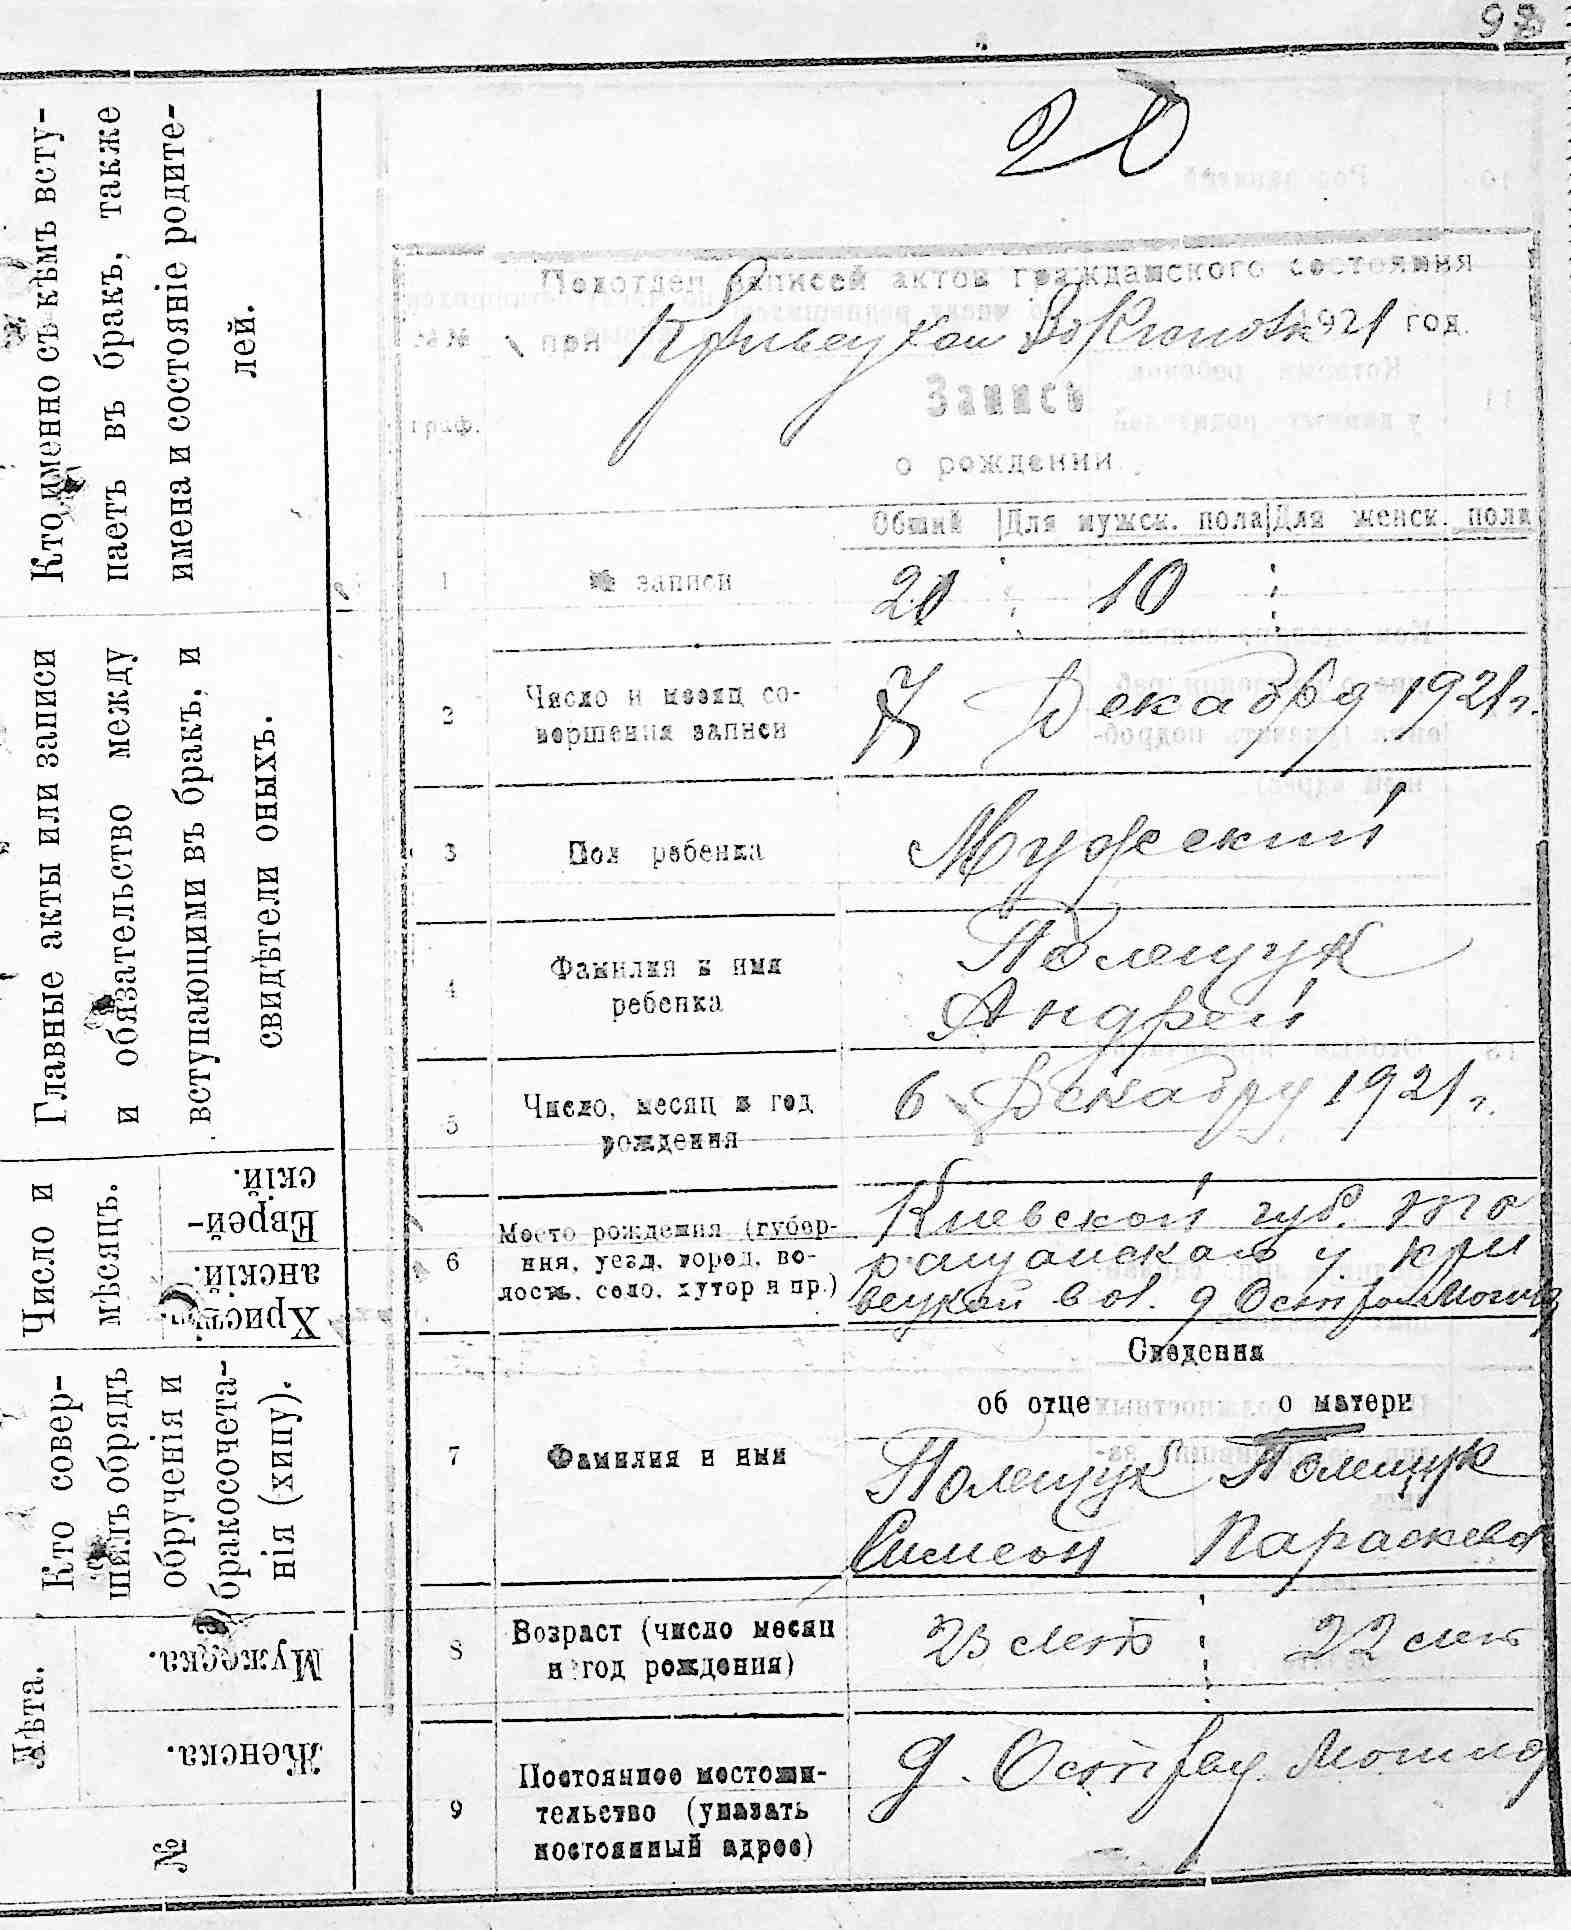 98
20
Кто именно съ кѣмъ всту-
паетъ въ бракъ, также
имена и состояніе родите-
лей.
Главные акты или записи
и обязательство между
вступающими въ бракъ, и
свидѣтели оныхъ.
Число и
мѣсяцъ.
Еврей-
скій.
Христі-
анскій.
Кто совер-
шилъ обрядъ
обрученія и
бракосочета-
нія (хипу).
Лѣта.
Мужеска.
Женска.
№
Подотдел записей актов гражданского состояния
при 1921 год.
№№
граф.
Запись
о рождении.
Общий Для мужск. пола Для женск. пола
1 № записи 20 10
2 Число и месяц со-
вершения записи
7 Декабря 1921 г.
3 Пол ребенка Мужеский
4 Фамилия и имя
ребенка
Полещук
Андрей
5 Число, месяц и год
рождения
6 Декабру 1921 г.
6 Место рождения (губер-
ния, уезд, город, во-
лость, село, хутор и пр.)
Киевской губ. тта
ращанскаго у кри
вецкой вол. д Острая Могила
Сведения
об отце о матери
7 Фамилия и имя
Полещук Полещук
Симеон Параскева
8 Возраст (число месяц
и год рождения)
23 лет 22 лет
9 Постоянное местожи-
тельство (указать
постоянный адрес)
д. Остра Могила